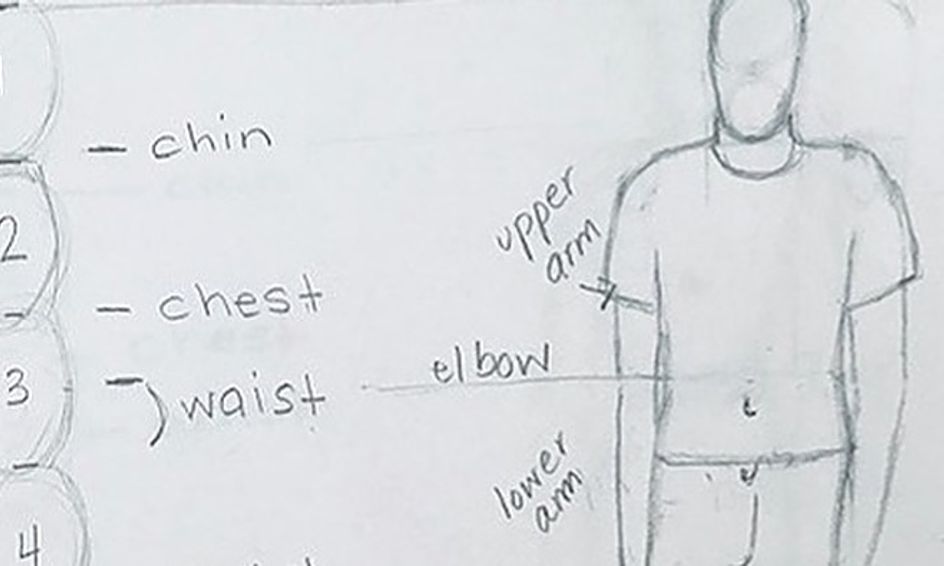 chin
upper
arm
2
chest
elbow
3
waist
lower
arm
4